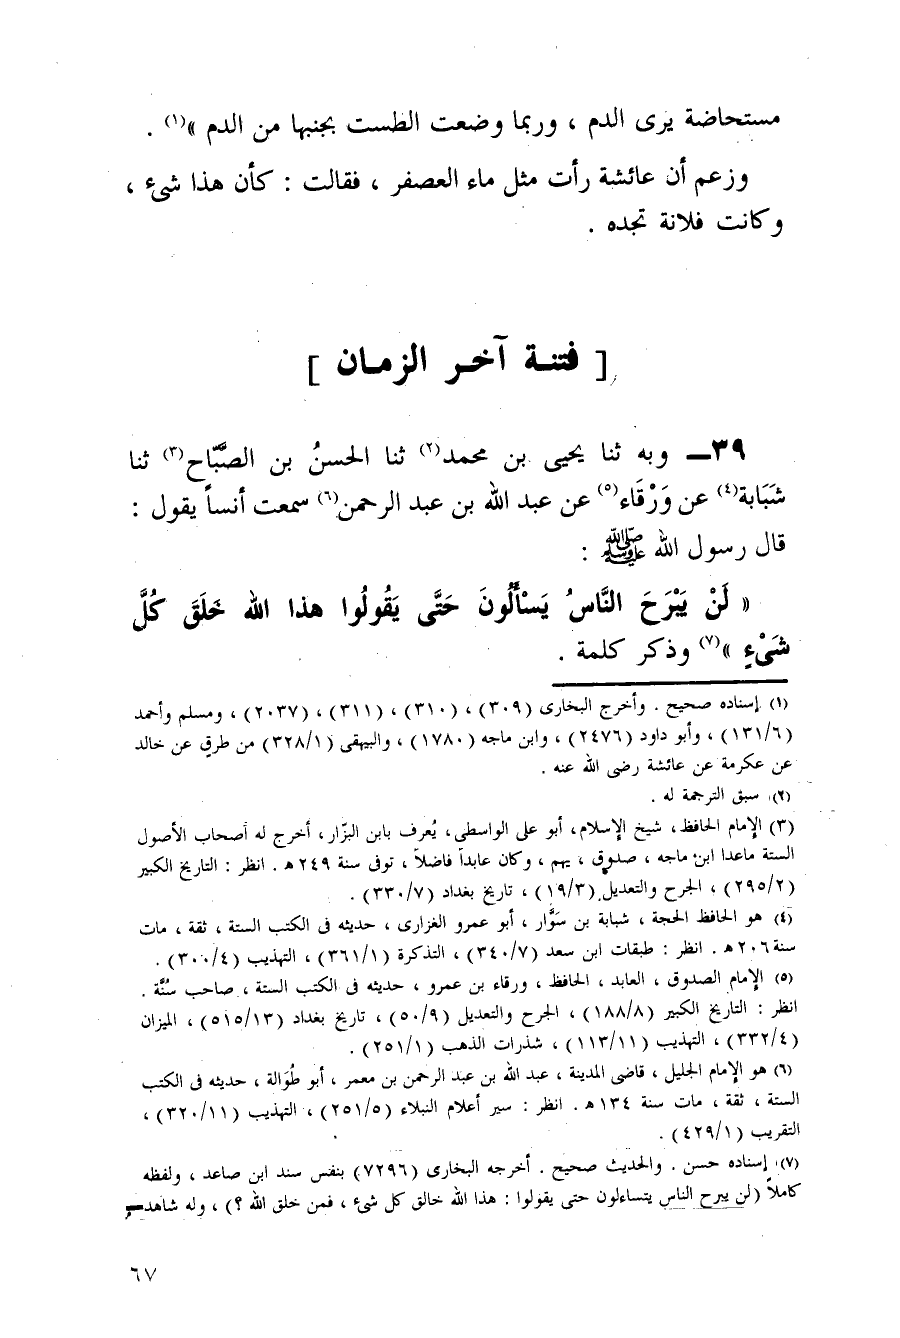 مستحاضة يرى الدم ، وربما وضعت الطست بجنبها من الدم »(١) .
وزعم أن عائشة رأت مثل ماء العصفر ، فقالت : كأن هذا شىء ،
وكانت فلانة تجده .
[ فتنة آخر الزمان ]
٣٩ــ وبه ثنا يحيى بن محمد(٢) ثنا الحسنُ بن الصَّبّاح(٣) ثنا
شَبَابة(٤) عن وَرْقَاء(٥) عن عبد الله بن عبد الرحمن(٦) سمعت أنساً يقول :
قال رسول الله ﷺ :
« لَنْ يَبْرَحَ النَّاسُ يَسْأَلُونَ حَتَّى يَقُولُوا هذا الله خَلَقَ كُلَّ
شَىْءٍ »(٧) وذكر كلمة .
(١) إسناده صحيح . وأخرج البخارى (٣٠٩) ، (٣١٠) ، (٣١١) ، (٢٠٣٧) ، ومسلم وأحمد
(١٣١/٦) ، وأبو داود (٢٤٧٦) ، وابن ماجه (١٧٨٠) ، والبيهقى (٣٢٨/١) من طرق عن خالد
عن عكرمة عن عائشة رضى الله عنه .
(٢) سبق الترجمة له .
(٣) الإمام الحافظ، شيخ الإسلام، أبو على الواسطى، يُعرف بابن البزّار، أخرج له أصحاب الأصول
الستة ماعدا ابن ماجه ، صدوق ، يهم ، وكان عابداً فاضلاً ، توفى سنة ٢٤٩ هـ . انظر : التاريخ الكبير
(٢٩٥/٢) ، الجرح والتعديل (١٩/٣) ، تاريخ بغداد (٣٣٠/٧) .
(٤) هو الحافظ الحجة ، شبابة بن سَوَّار ، أبو عمرو الغزارى ، حديثه فى الكتب الستة ، ثقة ، مات
سنة ٢٠٦ هـ . انظر : طبقات ابن سعد (٣٤٠/٧) ، التذكرة (٣٦١/١) ، التهذيب (٣٠٠/٤) .
(٥) الإمام الصدوق ، العابد ، الحافظ ، ورقاء بن عمرو ، حديثه فى الكتب الستة ، صاحب سُنَّة .
انظر : التاريخ الكبير (١٨٨/٨) ، الجرح والتعديل (٥٠/٩) ، تاريخ بغداد (٥١٥/١٣) ، الميزان
(٣٣٢/٤) ، التهذيب (١١٣/١١) ، شذرات الذهب (٢٥١/١) .
(٦) هو الإمام الجليل ، قاضى المدينة ، عبد الله بن عبد الرحمن بن معمر ، أبو طُوَالة ، حديثه فى الكتب
الستة ، ثقة ، مات سنة ١٣٤ هـ . انظر : سير أعلام النبلاء (٢٥١/٥) ، التهذيب (٣٢٠/١١) ،
التقريب (٤٢٩/١) .
(٧) إسناده حسن . والحديث صحيح . أخرجه البخارى (٧٢٩٦) بنفس سند ابن صاعد ، ولفظه
كاملاً (لن يبرح الناس يتساءلون حتى يقولوا : هذا الله خالق كل شىء ، فمن خلق الله ؟) ، وله شاهد
٦٧